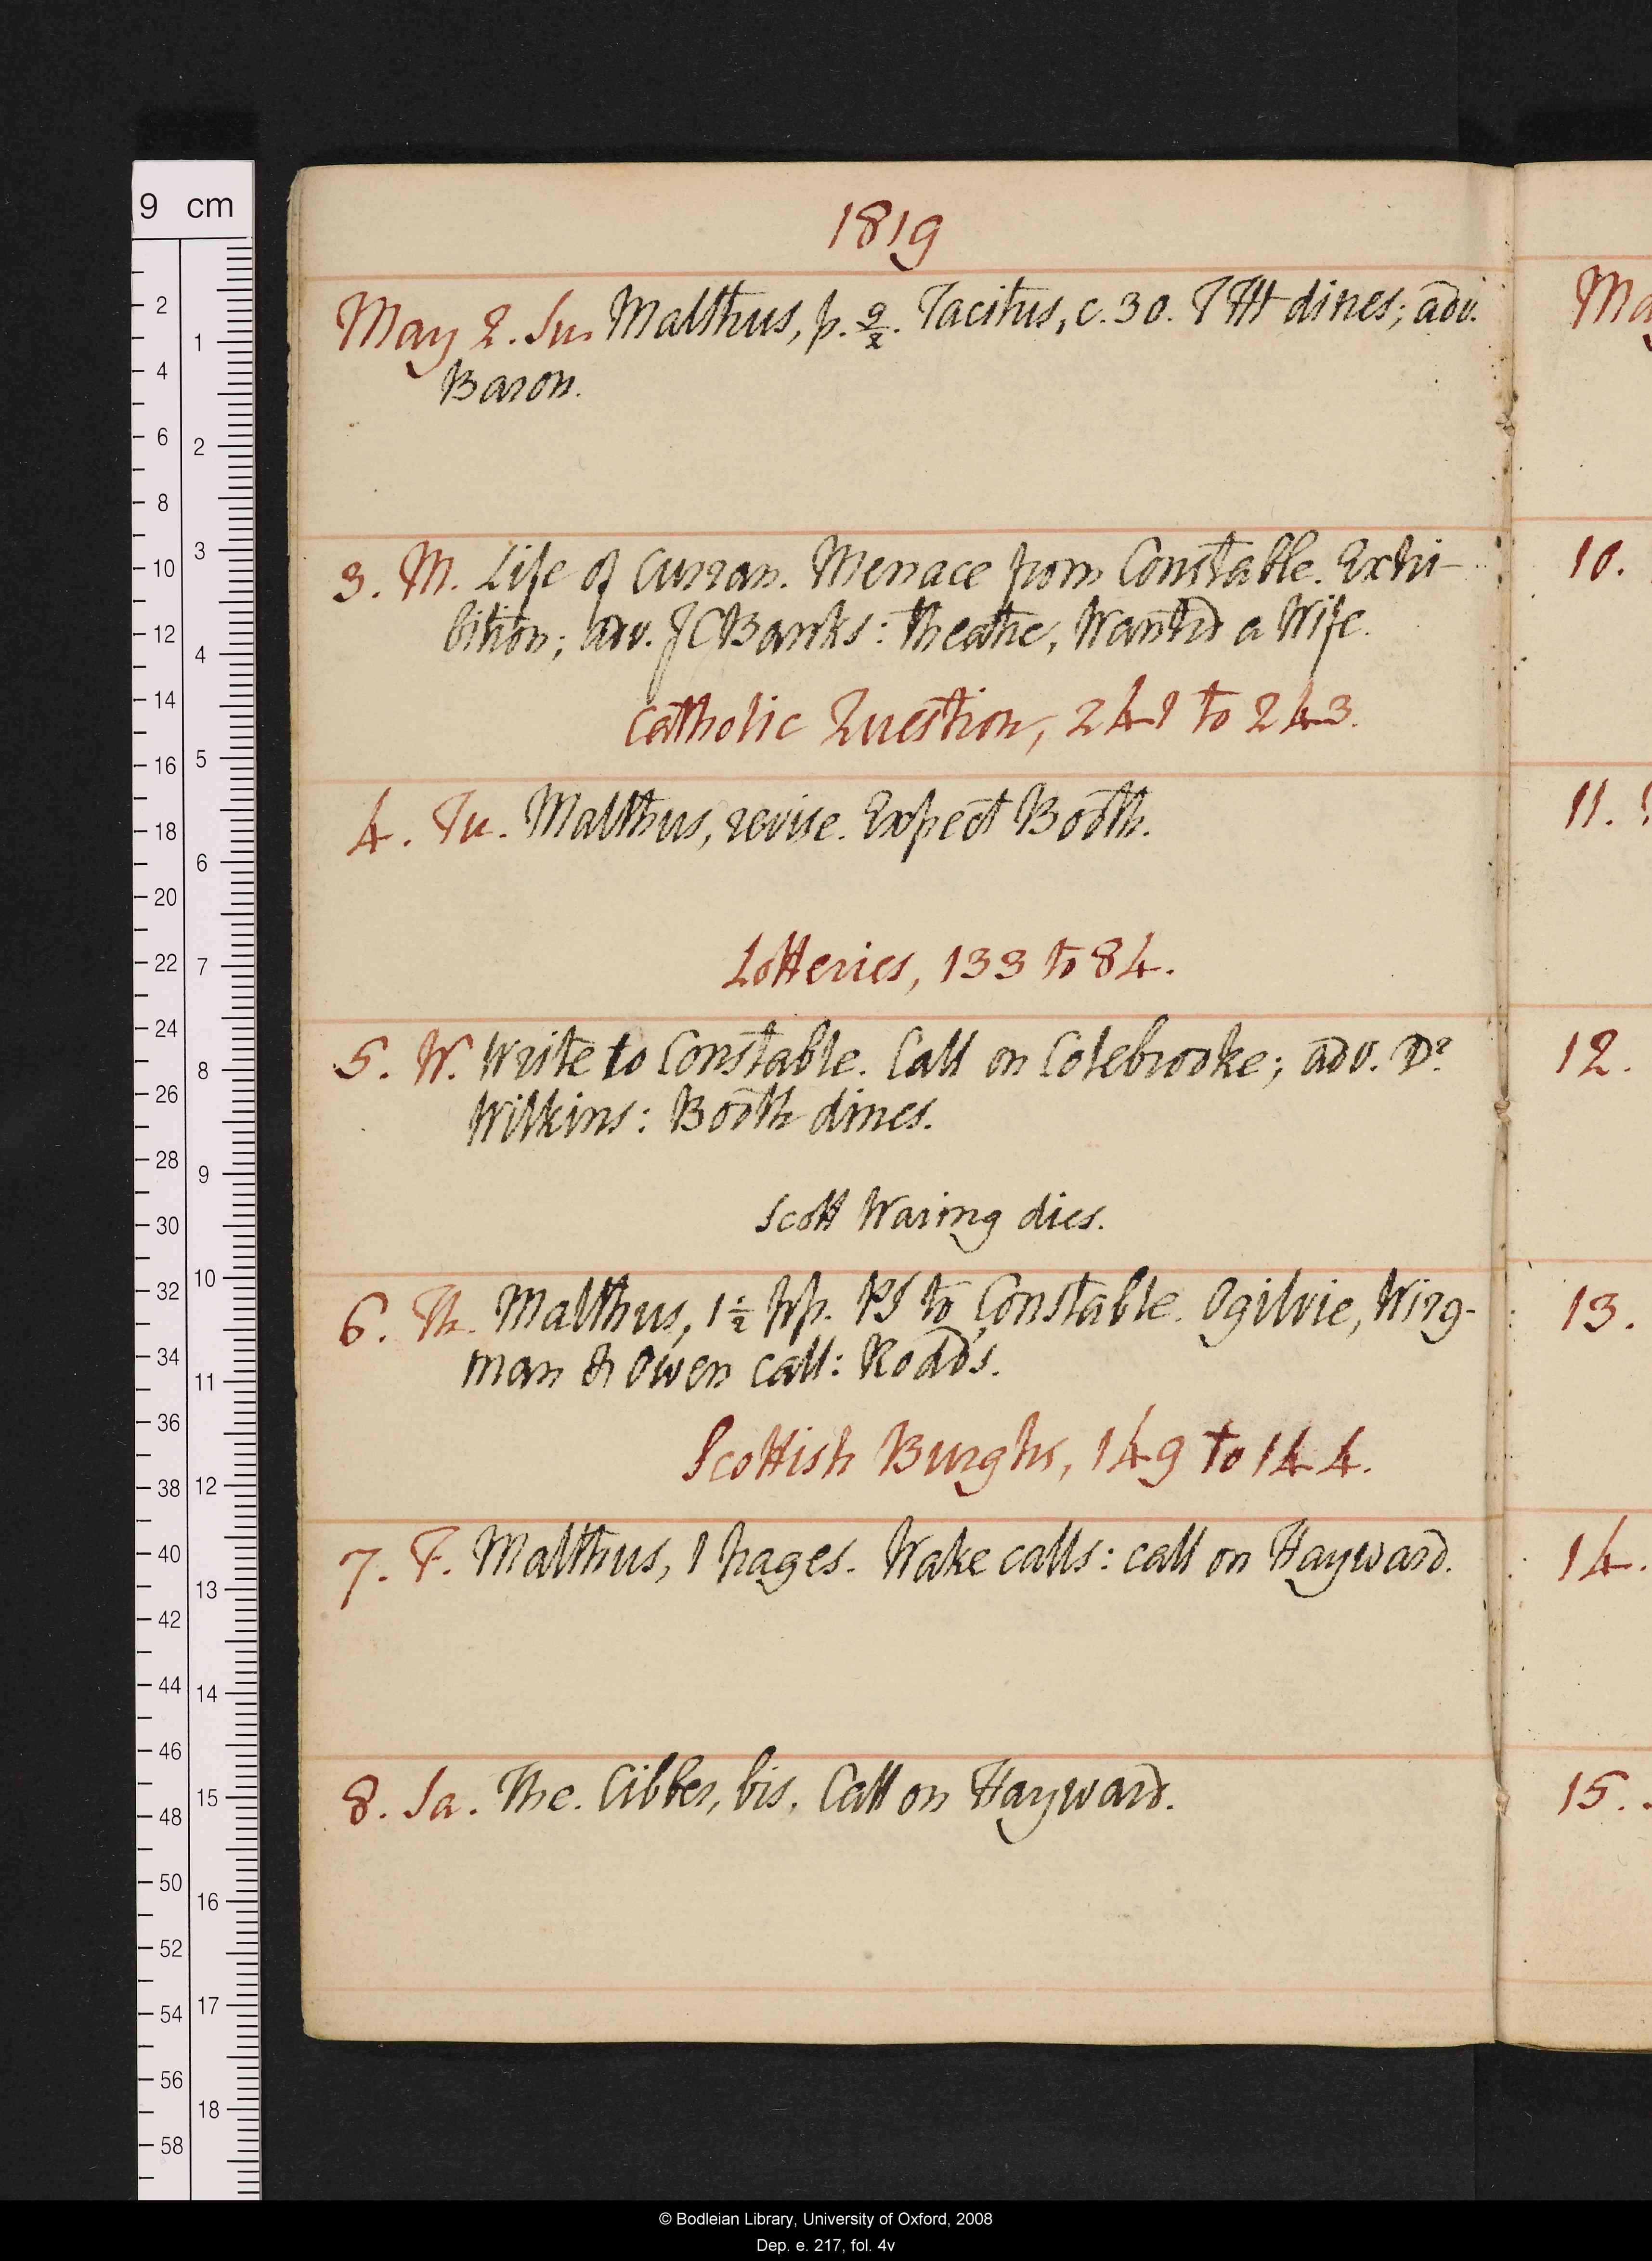 1819
May 2. Su. Malthus, p. 2/2. Tacitus, c. 30. T TH dines; adv.
Baron.
3. M. Life of Curran. Menace from Constable. Exhi-
bition; adv. J C Banks: theatre, Wanted a Wife.
Catholic Question, 241 to 243.
4. Tu. Malthus, revise. Expect Booth.
Lotteries, 133 to 84.
5. W. Write to Constable. Call on Colebrooke; adv. Dr
Wilkins: Booth dines.
Scott Waring dies.
6. Th. Malthus, 1 1/2 pp. PS to Constable. Ogilvie, Wirg-
man & Owen call: Roads.
Scottish Burghs, 149 to 144.
7. F. Malthus, 1 pages. Wake calls: call on Hayward.
8. Sa. The. Cibber, bis. Call on Hayward.
Ma
10.
11.
12.
13.
14.
15.
9 cm
2
4
6
8
10
12
14
16
18
20
22
24
26
28
30
32
34
36
38
40
42
44
46
48
50
52
54
56
58
1
2
3
4
5
6
7
8
9
10
11
12
13
14
15
16
17
18
© Bodleian Library, University of Oxford, 2008
Dep. e. 217, fol. 4v